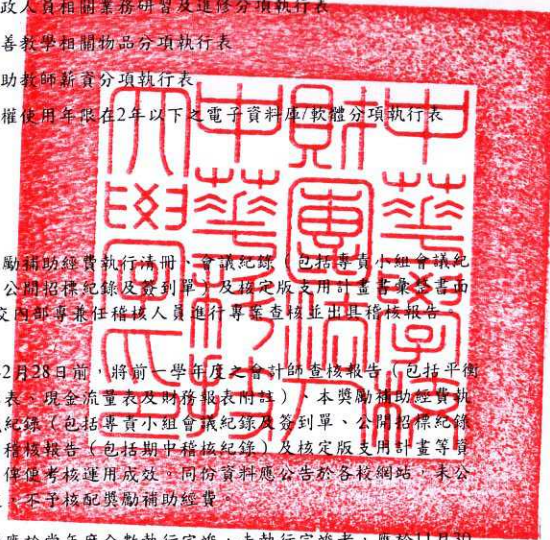 政人員相關業務研習及進修分項執行表
善教學相關物品分項執行表
助教師薪資分項執行表
權使用年限在2年以下之電子資料庫/軟體分項執行表
勵補助經費執行清冊、會議紀錄(包括專責小組會議紀
公開招標紀錄及簽到單)及核定版支用計畫書彙整書面
交內部專兼任稽核人員進行專案查核並出具稽核報告。
2月28日前,將前一學年度之會計師查核報告(包括平衡
表、現金流量表及財務報表附註)、本獎勵補助經費執
紀錄(包括專責小組會議紀錄及簽到單、公開招標紀錄
稽核報告(包括期中稽核紀錄)及核定版支用計畫等資
俾便考核運用成效。同份資料應公告於各校網站,未公
不予核配獎勵補助經費。
應於當年度全數執行完竣,未執行完竣者,應於11月30
中華學校
財團法人
中華科技
大學之印